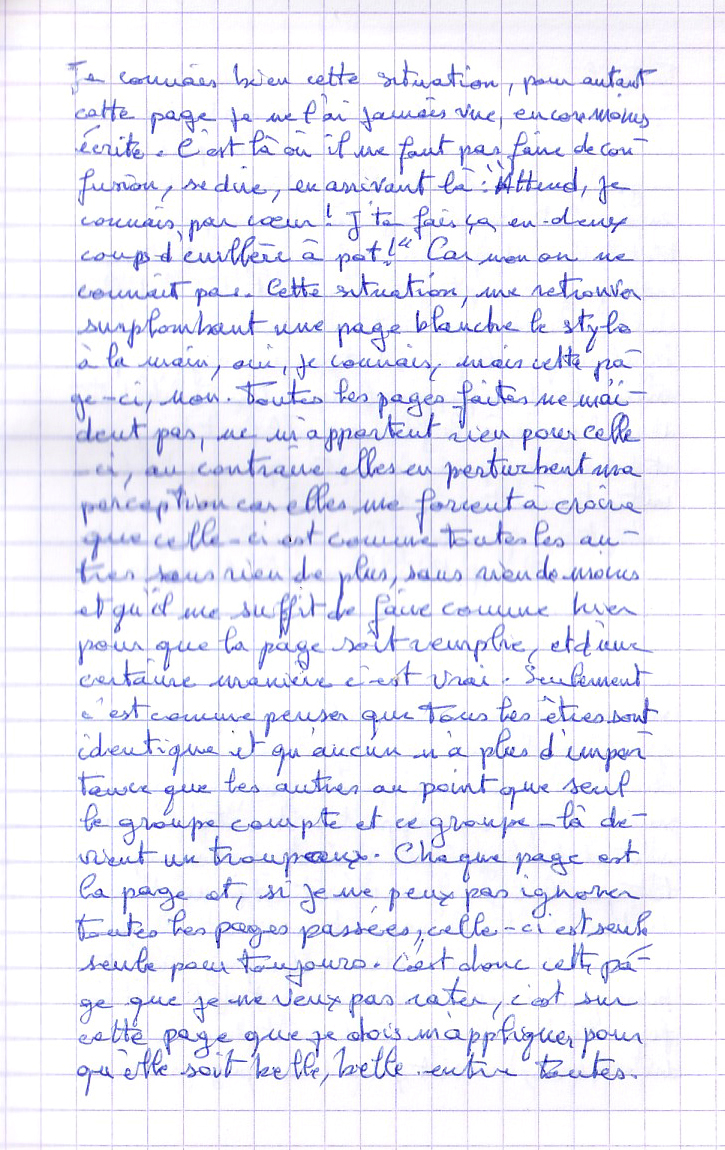 Je connais bien cette situation, pour autant
cette page je ne l'ai jamais vue, encore moins
écrite. C'est là où il ne faut pas faire de con-
fusion, se dire, en arrivant là : "Attend, je
connais par cœur ! J'te fais ça en deux
coups d'cuillère à pot !" Car non on ne
connait pas. Cette situation, me retrouver
surplombant une page blanche le stylo
à la main, oui, je connais, mais cette pa-
ge-ci, non. Toutes les pages faites ne m'ai-
dent pas, ne m'apportent rien pour celle
-ci, au contraire elles en perturbent ma
perception car elles me forcent à croire
que celle-ci est comme toutes les au-
tres sans rien de plus, sans rien de moins
et qu'il me suffit de faire comme hier
pour que la page soit remplie, et d'une
certaine manière c'est vrai. Seulement
c'est comme penser que tous les êtres sont
identique et qu'aucun n'a plus d'impor-
tance que les autres au point que seul
le groupe compte et ce groupe-là de-
vient un troupeaux. Chaque page est
la page et, si je ne peux pas ignorer
toutes les pages passées, celle-ci est seule
seule pour toujours. C'est donc cette pa-
ge que je ne veux pas rater, c'est sur
cette page que je dois m'appliquer pour
qu'elle soit belle, belle entre toutes.